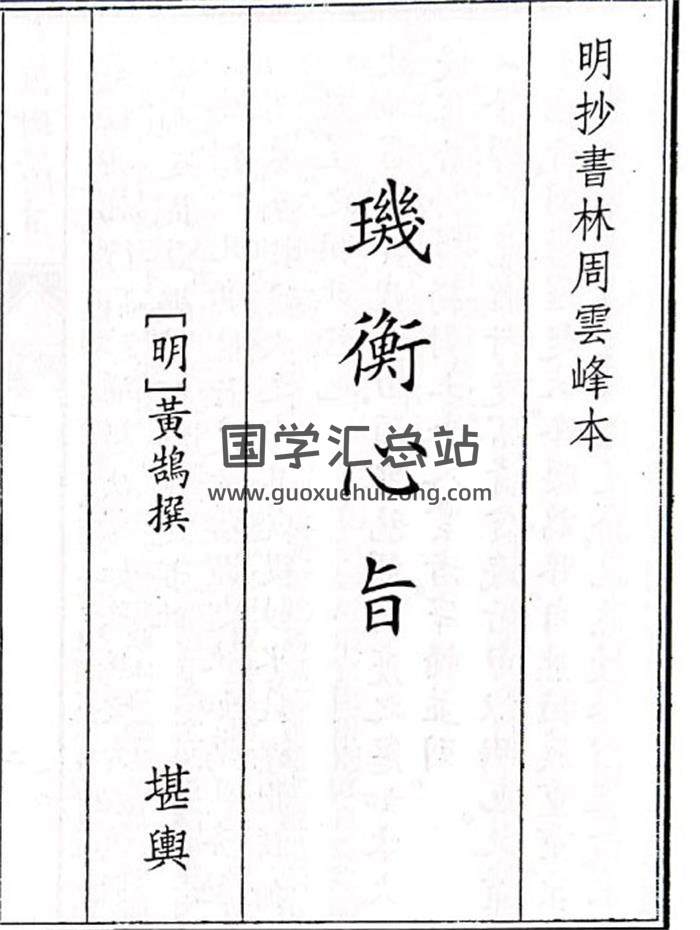 明抄書林周雲峰本
璣衡心旨
［明］黃鵠撰
堪輿
国学汇总站
www.guoxuehuizong.com